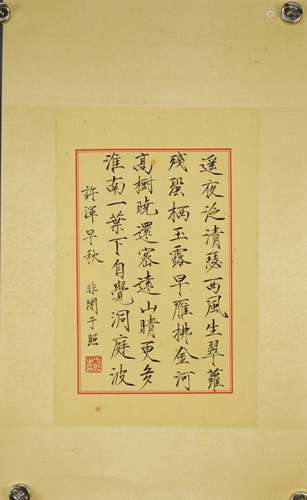 遥夜泛清瑟西風生翠蘿
殘螢栖玉露早雁拂金河
高樹曉還密遠山晴更多
淮南一葉下自覺洞庭波
許渾早秋 非闇于照